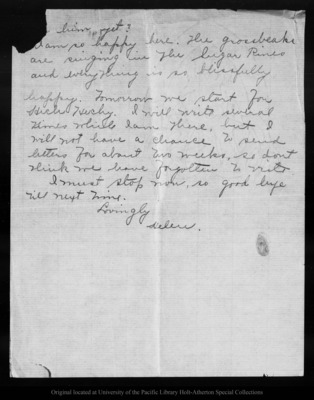 him, yet?
I am so happy here. The grosbeaks
are singing in the Sugar Pines
and everything is so blissfully
happy. Tomorrow we start for
Hetch Hetchy. I will write several
times while I am there, but I
will not have a chance to send
letters for about two weeks, so don't
think we have forgotten to write
I must stop now, so good bye
till next time.
Lovingly
Helen.
Original located at University of the Pacific Library Holt-Atherton Special Collections